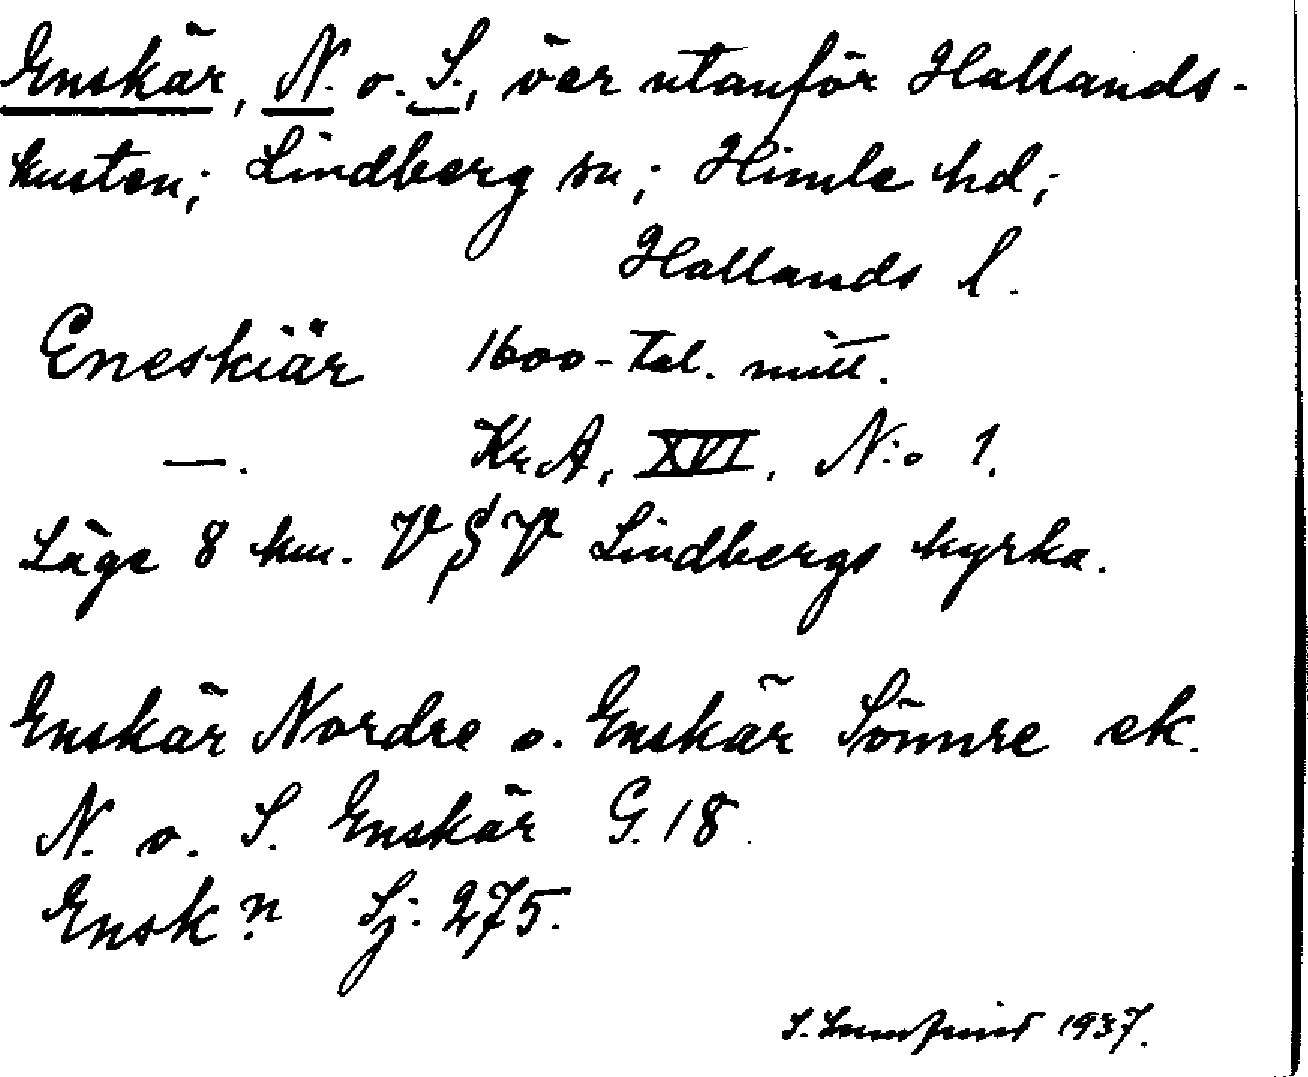 Enskär, N. o. S., öar utanför Hallands-
kusten; Lindberg sn; Himle hd;
Hallands l.
Eneskiär 1600-tal. mitt.
—. Kr.A, XVI, N:o 1.
Läge 8 km. V Lindbergs kyrka.
Enskär Nordre o. Enskär Sönnre ek.
N. o. S. Enskär G. 18.
Ensk:n Sj. 275.
S. 1937.